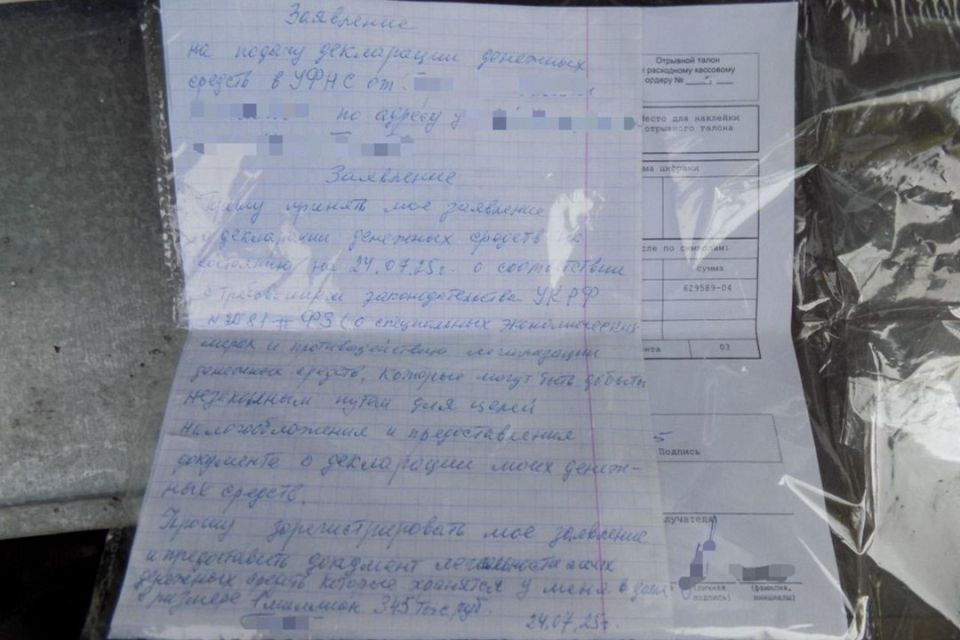 Заявление
на подачу декларации денежных
средств в УФНС от
по адресу у
Заявление
Прошу принять мое заявление
декларации денежных средств
состоянию на 24.07.25г. о соответствии
с законодательства УК РФ
ФЗ (о специальных экономических
мерах и противодействию легализации
денежных средств, которые могут быть добыты
незаконным путем для целей
налогообложения и предоставления
документа о декларации моих денеж-
ных средств.
Прошу зарегистрировать мое заявление
и предоставить документ моих
денежных которые хранятся у меня в
размере 1 миллион 345 тыс. руб.
24.07.25г.
Отрывной талон
расходному кассовому
ордеру №
место для наклейки
отрывного талона
цифрами
по символам:
сумма
629589-04
03
Подпись
(личная
подпись)
(фамилия,
инициалы)